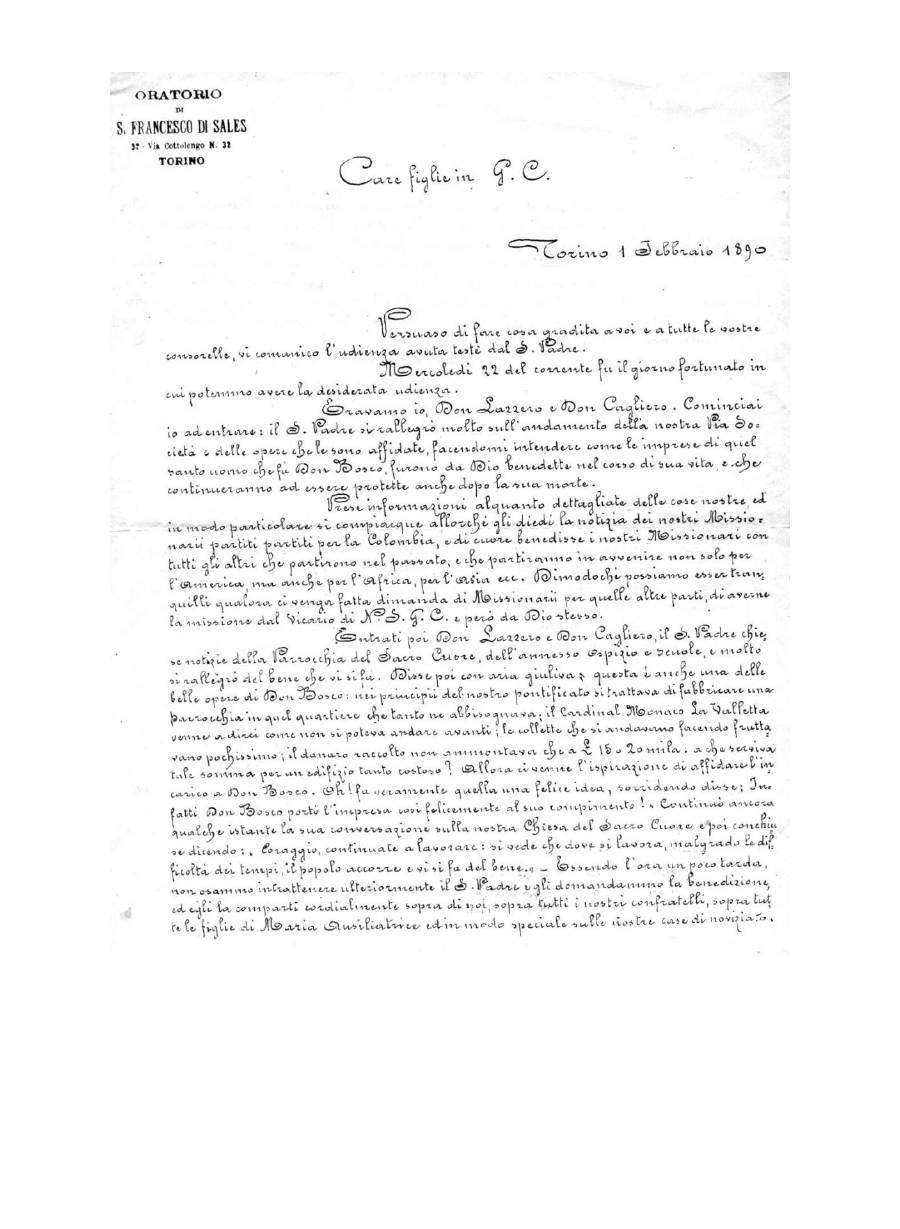 ORATORIO
DI
S. FRANCESCO DI SALES
32 - Via Cottolengo N. 32
TORINO
Care figlie in G. C.
Torino 1 Febbraio 1890
Persuaso di fare cosa gradita a voi e a tutte le vostre
consorelle, vi comunico l'udienza avuta testè dal S. Padre.
Mercoledì 22 del corrente fu il giorno fortunato in
cui potemmo avere la desiderata udienza.
Eravamo io, Don Lazzero e Don Cagliero. Cominciai
io ad entrare: il S. Padre si rallegrò molto sull'andamento della nostra Pia So-
cietà e delle opere che le sono affidate, facendomi intendere come le imprese di quel
santo uomo che fu Don Bosco, furono da Dio benedette nel corso di sua vita, e che
continueranno ad essere protette anche dopo la sua morte.
Prese informazioni alquanto dettagliate delle cose nostre, ed
in modo particolare si compiacque allorchè gli diedi la notizia dei nostri Missio-
narii partiti partiti per la Colombia, e di cuore benedisse i nostri Missionari con
tutti gli altri che partirono nel passato, e che partiranno in avvenire non solo per
l'America, ma anche per l'Africa, per l'Asia ecc. Dimodochè possiamo esser tran-
quilli qualora ci venga fatta dimanda di Missionarii per quelle altre parti, di averne
la missione dal Vicario di N. S. G. C. e però da Dio stesso.
Entrati poi Don Lazzero e Don Cagliero, il S. Padre chie-
se notizie della Parrocchia del Sacro Cuore, dell'annesso Ospizio e scuole, e molto
si rallegrò del bene che vi si fa. Disse poi con aria giuliva: questa è anche una delle
belle opere di Don Bosco: nei principii del nostro pontificato si trattava di fabbricare una
parrocchia in quel quartiere che tanto ne abbisognava; il Cardinal Monaco La Valletta
venne a dirci come non si poteva andare avanti; le collette che si andavano facendo frutta-
vano pochissimo; il danaro raccolto non ammontava che a £ 15 o 20 mila: a che serviva
tale somma per un edifizio tanto costoso? Allora ci venne l'ispirazione di affidare l'in-
carico a Don Bosco. Oh! fu veramente quella una felice idea, sorridendo disse; In-
fatti Don Bosco portò l'impresa così felicemente al suo compimento!" Continuò ancora
qualche istante la sua conversazione sulla nostra Chiesa del Sacro Cuore e poi conchiu-
se dicendo: "Coraggio, continuate a lavorare: si vede che dove si lavora, malgrado le dif-
ficoltà dei tempi, il popolo accorre e vi si fa del bene." - Essendo l'ora un poco tarda,
non osammo intrattenere ulteriormente il S. Padre e gli domandammo la benedizione,
ed egli la compartì cordialmente sopra di noi, sopra tutti i nostri confratelli, sopra tut-
te le figlie di Maria Ausiliatrice ed in modo speciale sulle nostre case di noviziato.